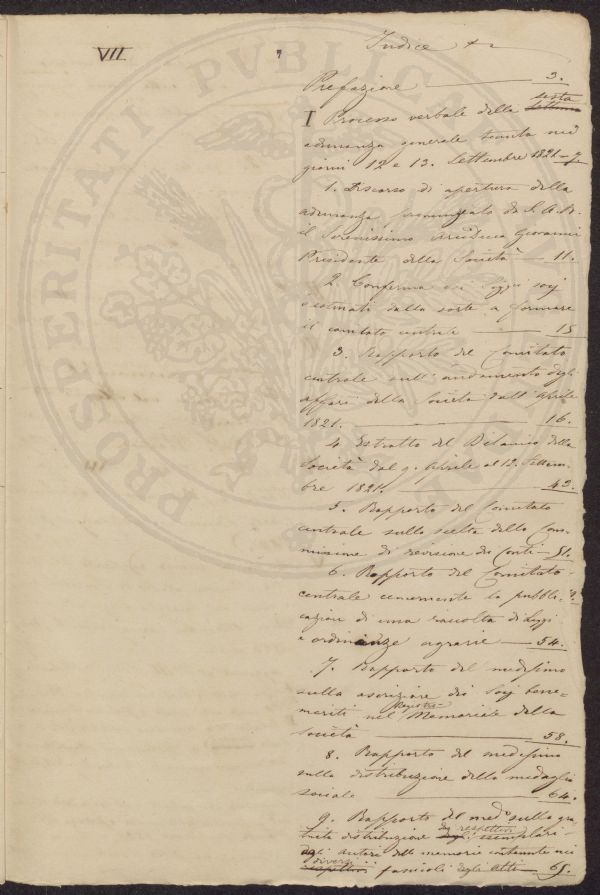 VII.
7
Indice
Prefazione — 3.
I Processo verbale della sesta settima
adunanza generale tenuta nei
giorni 12 e 13. Settembre 1821 — 7
1. Discorso di apertura della
adunanza pronunziato da S. A. R.
il Serenissimo Arciduca Giovanni
Presidente della Società — 11.
2. Conferma dei Sigg.i socj
estratti dalla sorte a formare
il comitato centrale — 15
3. Rapporto del Comitato
centrale sull' andamento degli
affari della Società dall' Aprile
1821. — 16.
4. Estratto del Bilancio della
Società dal 9. Aprile al 12. Settem-
bre 1821. — 43.
5. Rapporto del Comitato
centrale sulla scelta della Com-
missione di revisione dei Conti — 51.
6. Rapporto del Comitato
centrale concernente la pubbli-
cazione di una raccolta di Leggi
e ordinanze agrarie — 54.
7. Rapporto del medesimo
sulla ascrizione dei Socj bene-
meriti nel Memoriale della
Società — 58.
8. Rapporto del medesimo
sulla distribuzione della medaglia
sociale — 64.
9. Rapporto del med.o sulla gra-
tuita distribuzione di rispettivi esemplari
agli autori delle memorie contenute nei
diversi rispettivi fascicoli degli Atti — 65.
PROSPERITATI PVBLICAE